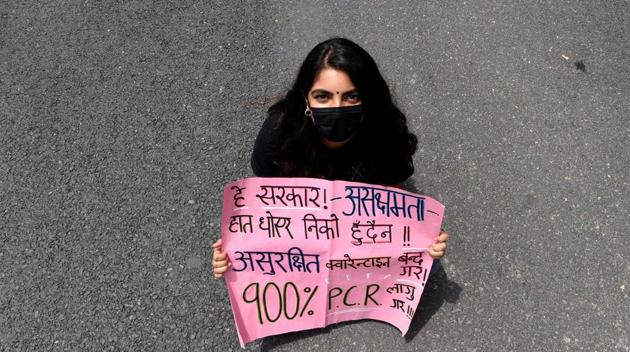 हे सरकार! - असक्षमता -
हात धोएर निको हुँदैन !!
असुरक्षित क्वारेन्टाइन बन्द गर!
१००% P.C.R. लागु गर!!!